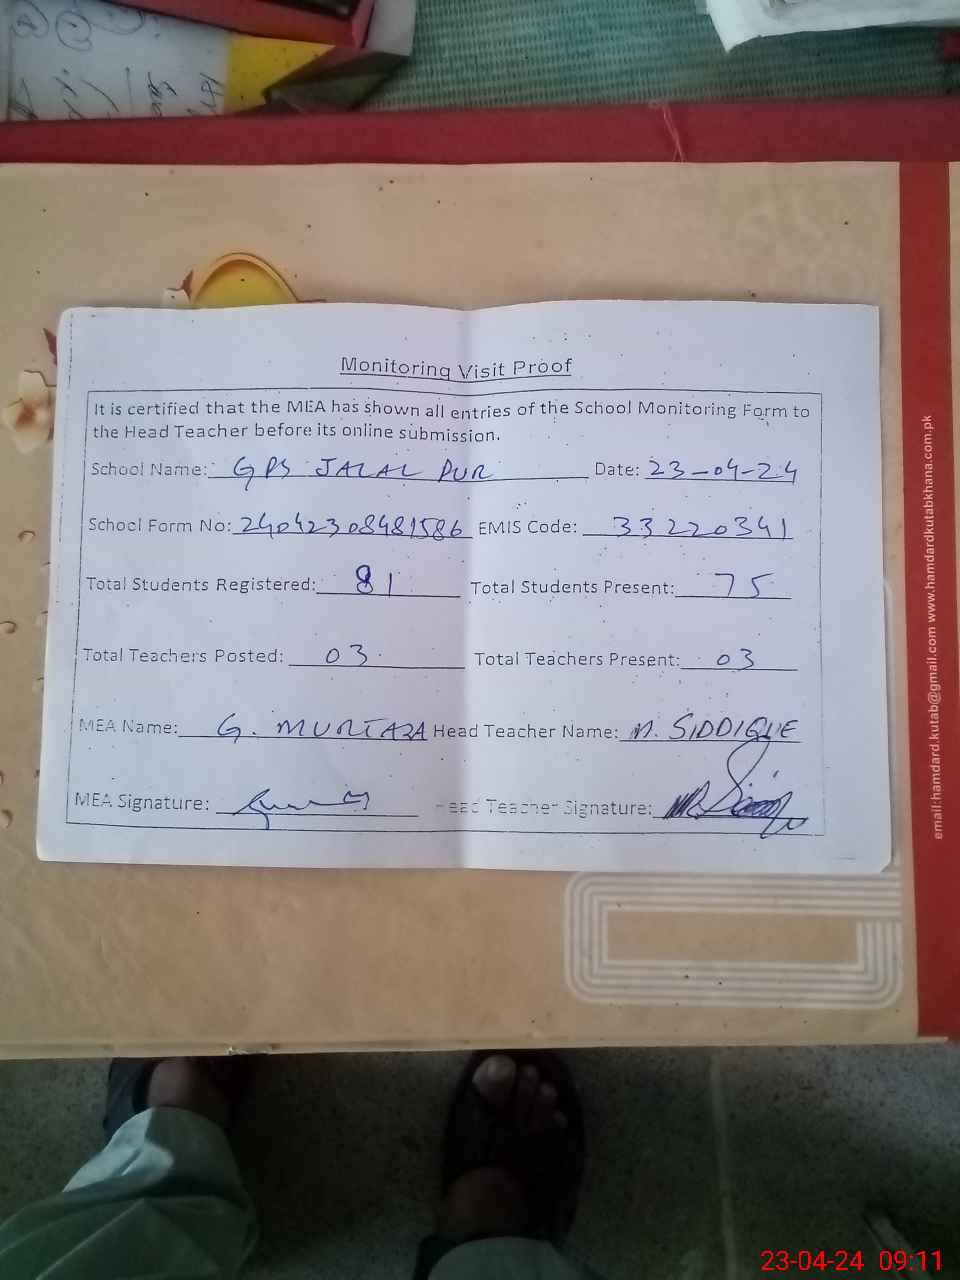 Monitoring Visit Proof
It is certified that the MEA has shown all entries of the School Monitoring Form to
the Head Teacher before its online submission.
School Name: GPS JALAL PUR Date: 23-04-24
School Form No: 24042308481586 EMIS Code: 33220341
Total Students Registered: 81 Total Students Present: 75
Total Teachers Posted: 03 Total Teachers Present: 03
MEA Name: G. MURTAZA Head Teacher Name: M. SIDDIQUE
MEA Signature: Head Teacher Signature:
email:hamdard.kutab@gmail.com www.hamdardkutabkhana.com.pk
23-04-24 09:11